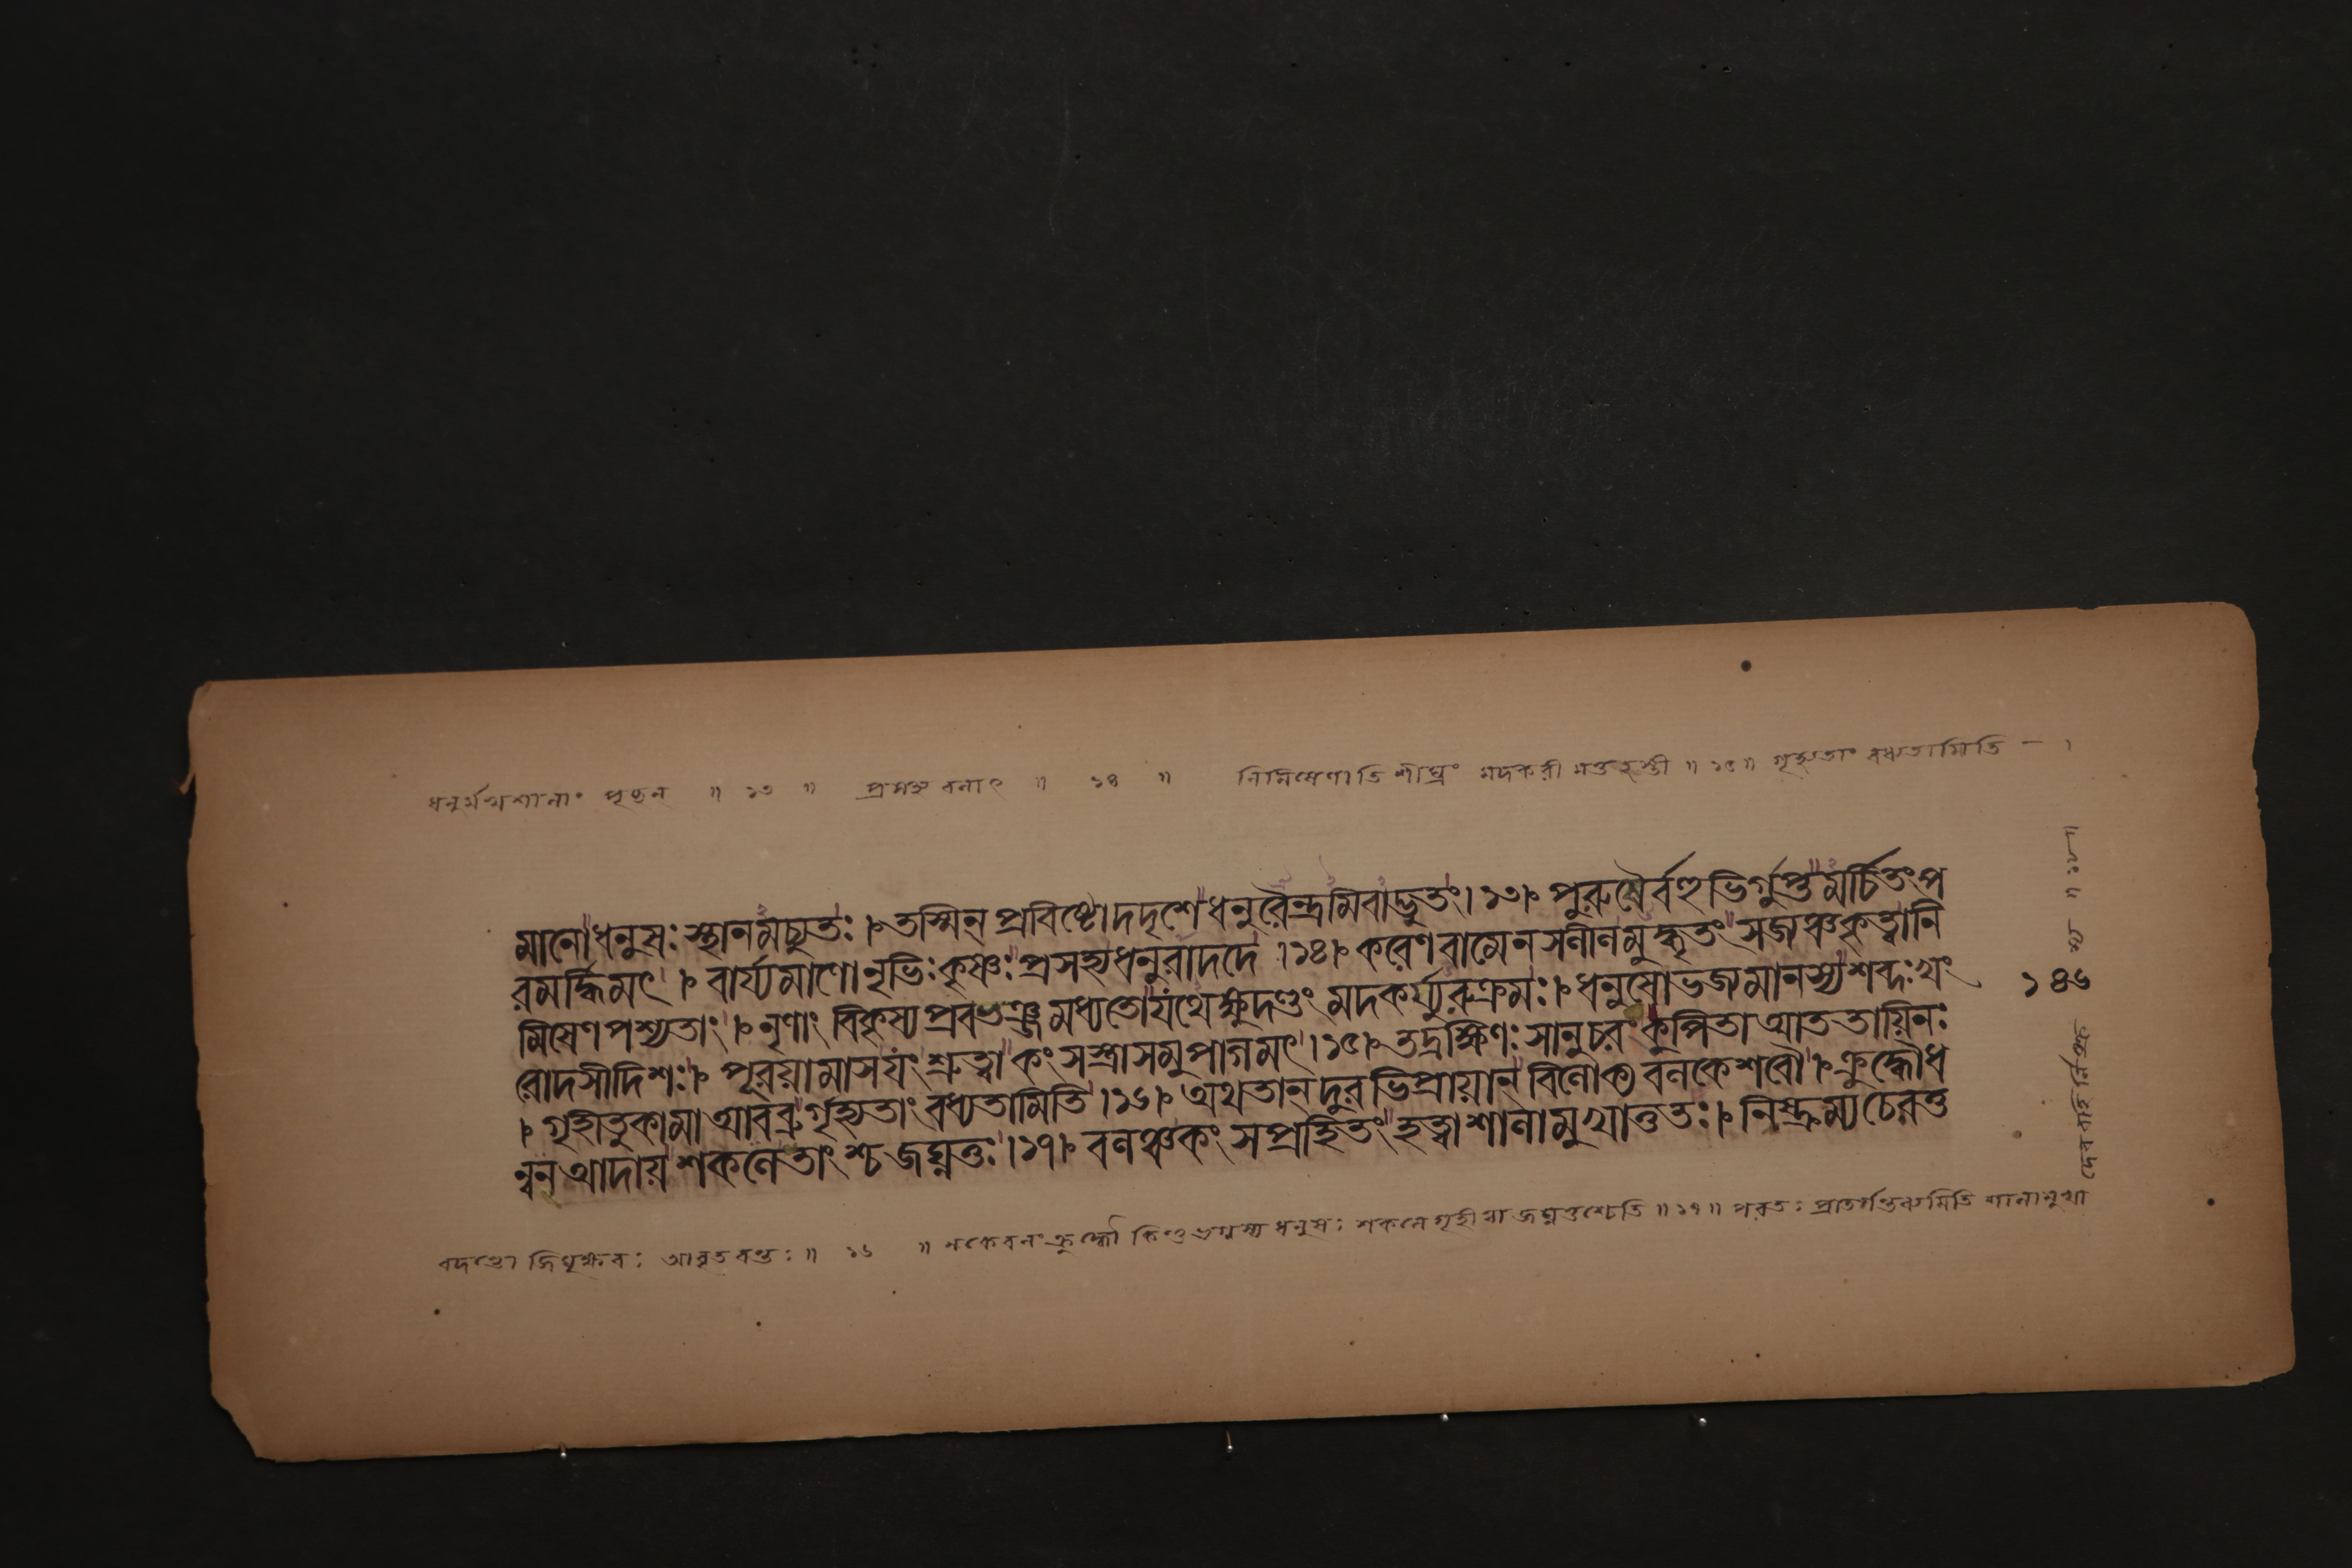 ধনুর্মখশালাং পৃচ্ছন্ ॥ ১৩ ॥ প্রসহ্য বলাৎ ॥ ১৪ ॥ নিমিষেণাতি শীঘ্রং মদকরী মত্তহস্তী ॥ ১৫ ॥ গৃহ্যতাং বধ্যতামিতি — ।
মানোধনুসঃস্থানমচ্যুতঃ।৮ তস্মিন্ প্রবিষ্টোদদৃশেধনুরৈন্দ্রমিবাদ্ভুতং।১৩। পুরুষৈর্বহুভির্গুপ্তমর্চিতংপ
রমর্দ্ধিমৎ । বার্য্যমাণোনৃভিঃকৃষ্ণঃপ্রসহ্যধনুরাদদে ।১৪। করেণবামেনসলীলমুদ্ধৃতং সজঞ্চকৃত্বানি
মিষেণপশ্যতাং । নৃণাং বিকৃস্যপ্রবভঞ্জমধ্যতোযথেক্ষুদণ্ডং মদকর্য্যুরুক্রমঃ। ধনুষোভজমানস্যশব্দঃখং
রোদসীদিশঃ। পূরয়ামাসযং শ্রুত্বা কংসস্ত্রাসমুপাগমৎ।১৫। তদ্রক্ষিণঃসানুচরং কুপিতা আততায়িনঃ
। গৃহীতুকামাআবব্রুর্গৃহ্যতাং বধ্যতামিতি ।১৬। অথতান্ দুরভিপ্রায়ান্ বিলোক্য বলকেশবৌ । ক্রুদ্ধৌধ
ন্বন্আদায়শকলেতাংশ্চ জঘ্নতুঃ।১৭। বলঞ্চকংসপ্রহিতং হত্বাশালামুখাত্ততঃ। নিষ্ক্রম্যচেরতু
১৪৬
বদন্তো জিঘৃক্ষবঃ আবৃতবন্তঃ॥ ১৬ ॥ ধনুসঃ শকলে গৃহীত্বা জঘ্নতুশ্চেতি ॥ ১৭ ॥ শালামুখা